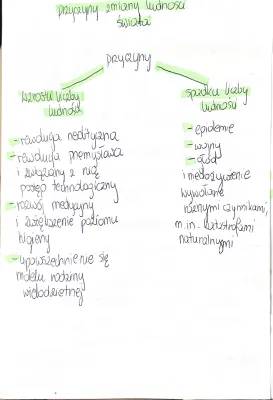 przyczyny zmiany ludności
świata
przyczyny
wzrostu liczby
ludności
- rewolucja neolityczna
- rewolucja przemysłowa
i związany z nią
postęp technologiczny
- rozwój medycyny
i zwiększenie poziomu
higieny
- upowszechnienie się
modelu rodziny
wielodzietnej
spadku liczby
ludności
- epidemie
- wojny
- głód
i niedożywienie
wywołane
różnymi czynnikami,
m.in. katastrofami
naturalnymi